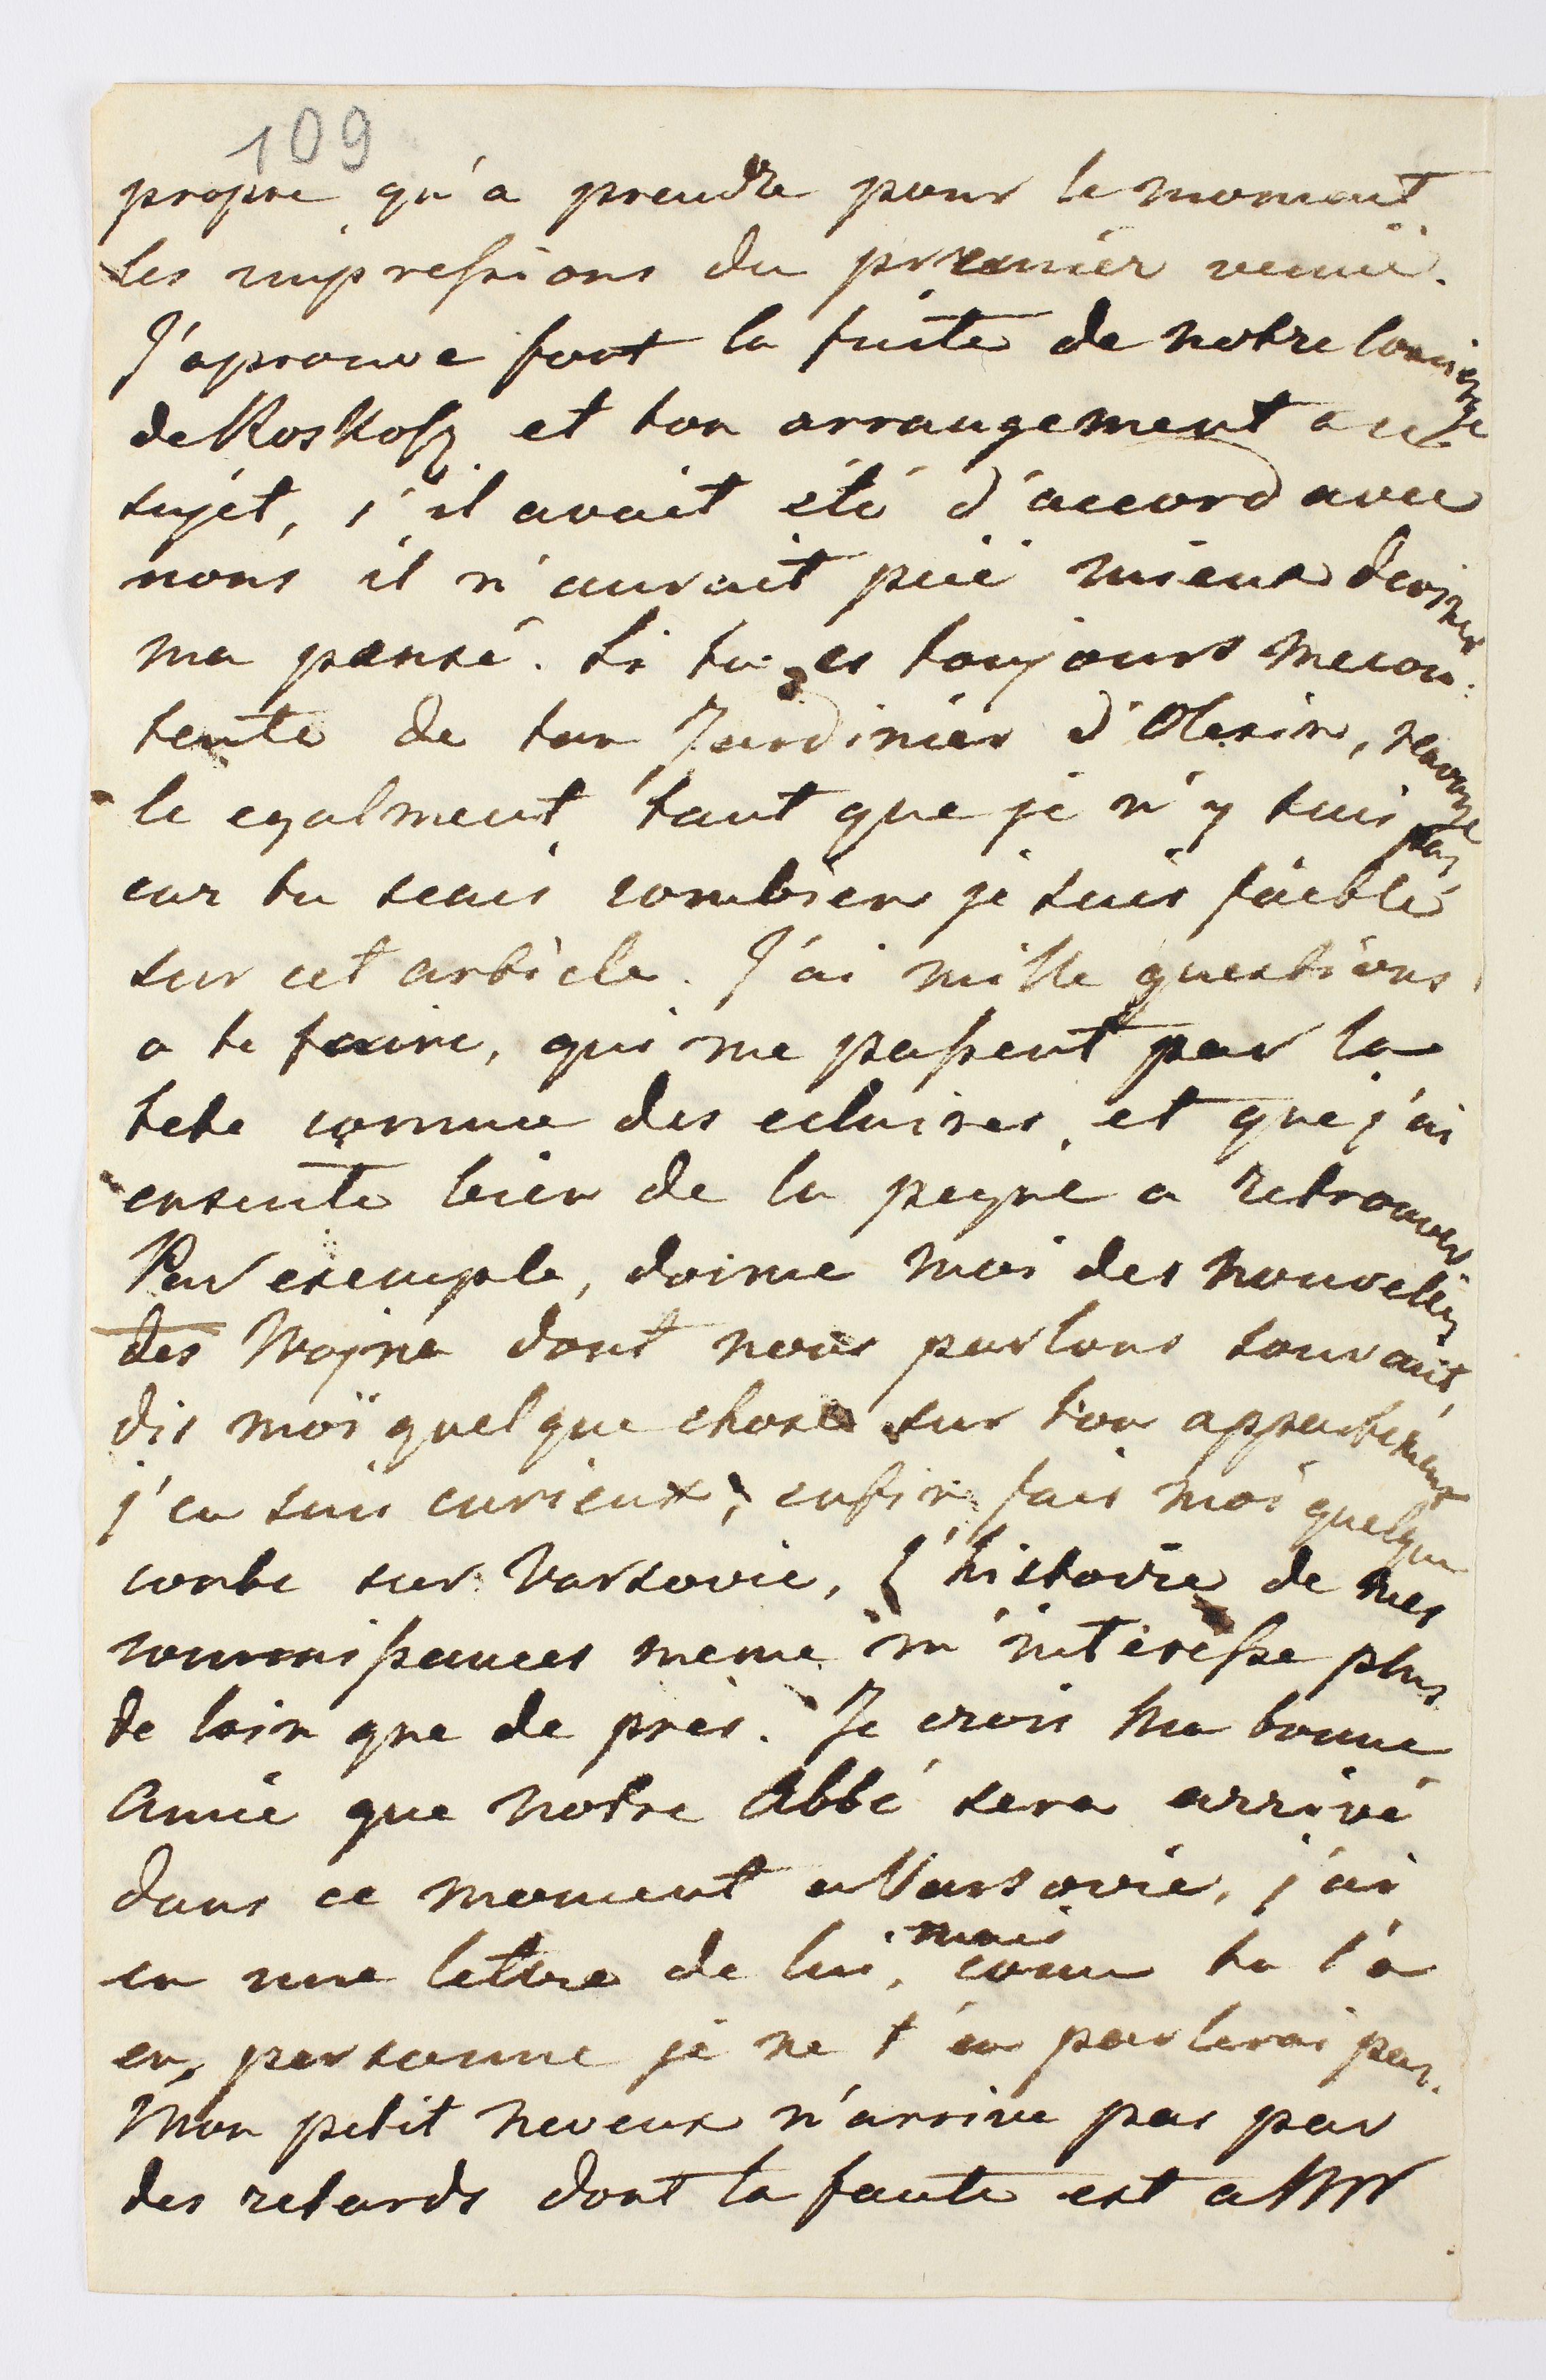 109
propre qu'a prendre pour le moment
les impressions du premier venuë.
J'aprouve fort la fuite de notre
de Koskosq et ton arrangement a ce
sujet, s'il avait été d'accord avec
nous il n'aurait puë mieux deviner
ma pensé. Si tu es toujours mecon-
tente de ton Jardinier d'Olesin, renvoye
le egalment tant que je n'y suis pas,
car tu scais combien je suis faible
sur cet article. J'ai mille questions
a te faire, qui me passent par la
tete comme des eclaires, et que j'ai
ensuite bien de la peyne a retrouver
Par exemple, donne moi des nouveles
des Woyna dont nous parlons souvant,
dis moi quelque chose sur ton appartement
j'en suis curieux, enfin fais moi quelque
conte sur Varsovie, l'histoire de mes
connaissances meme m'interesse plus
de loin que de près. Je crois ma bonne
Amie que notre Abbé sera arrivé
dans ce moment a Varsovie, j'ai
eu une lettre de lui, mais come tu l'a
en personne je ne t'en parlerai pas.
Mon petit neveux n'arrive pas par
des retards dont la faute est a Mr